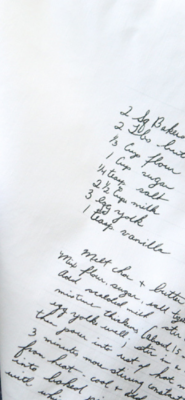 2 sq Baker
2 Tbs butt
1/3 Cup flour
1 Cup sugar
1/4 teasp salt
2 1/2 Cup milk
3 egg yolk
1 teasp vanilla
Melt cho + butter
Mix flour, sugar, salt
Add scalded milk
mixture thickens (about 15
egg yolk well, stir in
then pour into rest / hot
3 minutes more stirring constan
from heat - cool + add
into baked pie
with